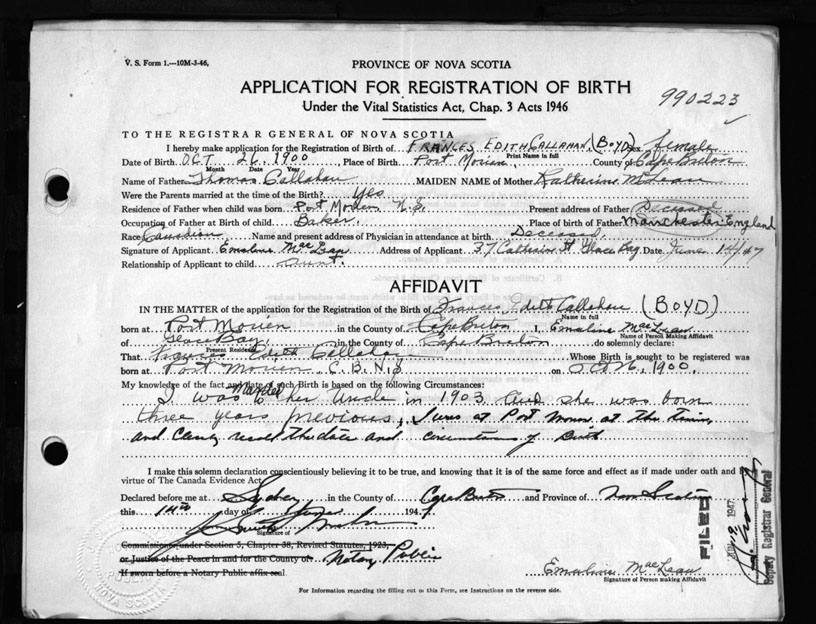 V. S. Form 1.—10M-3-46,
PROVINCE OF NOVA SCOTIA
APPLICATION FOR REGISTRATION OF BIRTH
Under the Vital Statistics Act, Chap. 3 Acts 1946
990223
TO THE REGISTRAR GENERAL OF NOVA SCOTIA
I hereby make application for the Registration of Birth of FRANCES EDITH CALLAHAN, (BOYD) sex female
Print Name in full
Date of Birth OCT 26 1900 Place of Birth Port Morien County of Cape Breton
Month Date Year
Name of Father Thomas Callahan MAIDEN NAME of Mother Katherine McLean
Were the Parents married at the time of the Birth? Yes
Residence of Father when child was born Port Morien N.S. Present address of Father Deceased
Occupation of Father at Birth of child Baker Place of birth of Father Manchester England
Race Canadian Name and present address of Physician in attendance at birth Deceased
Signature of Applicant Emaline MacLean Address of Applicant 37 Catherine St Glace Bay Date June 14/47
Relationship of Applicant to child Aunt.
AFFIDAVIT
IN THE MATTER of the application for the Registration of the Birth of Francis Edith Callahan (BOYD)
Name in full
born at Port Morien in the County of Cape Breton I, Emaline MacLean
Name of Person Making Affidavit
of Glace Bay, in the County of Cape Breton do solemnly declare:
Present Residence
That Francis Edith Callahan Whose Birth is sought to be registered was
born at Port Morien C.B. N.S on Oct 26, 1900.
My knowledge of the fact and date of such Birth is based on the following Circumstances:
I was married her Uncle in 1903 and she was born
three years previous, I was at Port Morien at the time,
and Clearly recall the date and circumstances of Birth
I make this solemn declaration conscientiously believing it to be true, and knowing that it is of the same force and effect as if made under oath and by
virtue of The Canada Evidence Act.
Declared before me at Sydney in the County of Cape Breton and Province of Nova Scotia
this 14th day of June 1947
Signature of
Commissioner, under Section 5, Chapter 38, Revised Statutes, 1923,
or Justice of the Peace in and for the County of Notary Public
If sworn before a Notary Public affix seal.
Emaline MacLean
Signature of Person making Affidavit
For Information regarding the filling out of this Form, see Instructions on the reverse side.
FILED
1947
Deputy Registrar General
NOVA SCOTIA